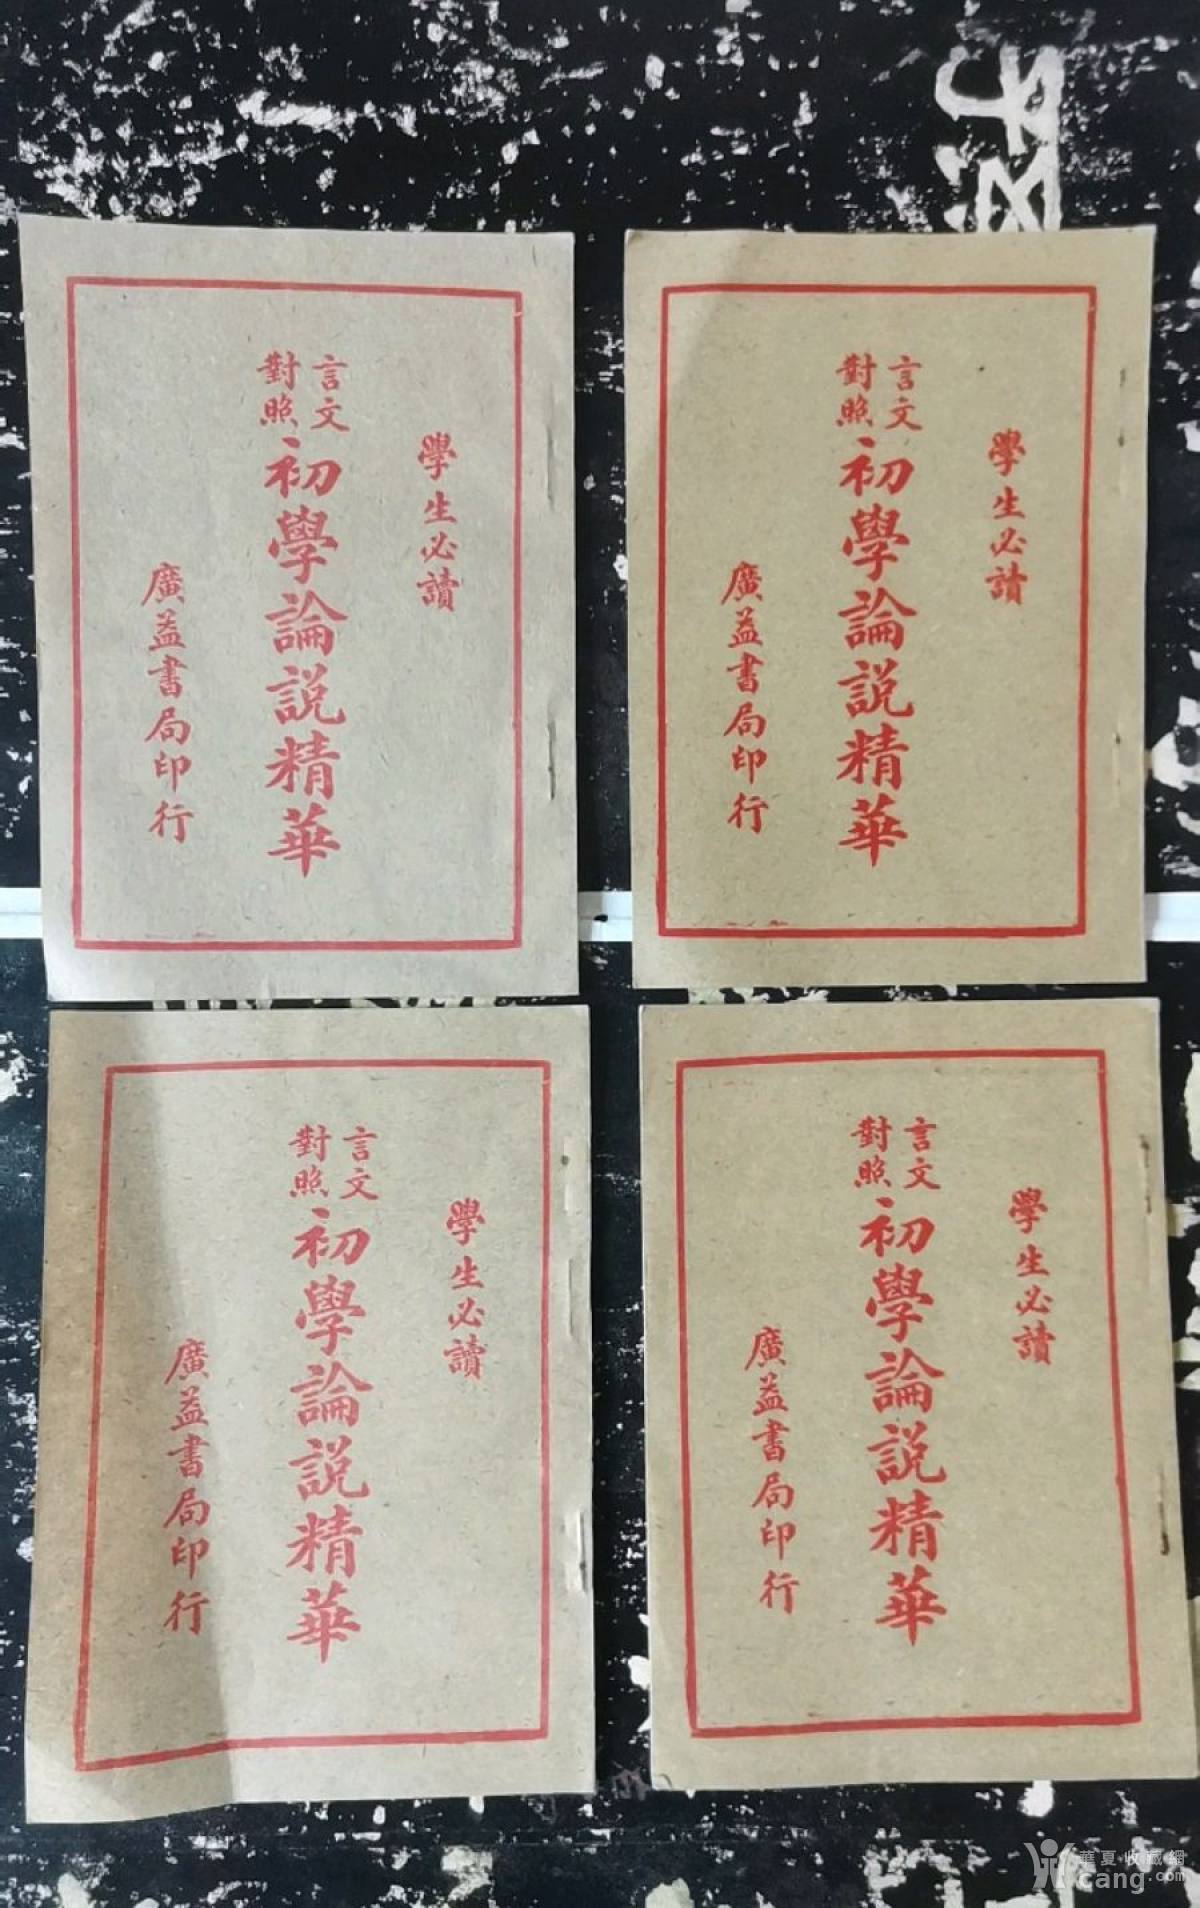 學生必讀
言文
對照
初學論説精華
廣益書局印行
學生必讀
言文
對照
初學論説精華
廣益書局印行
學生必讀
言文
對照
初學論説精華
廣益書局印行
學生必讀
言文
對照
初學論説精華
廣益書局印行
華夏收藏網
cang.com